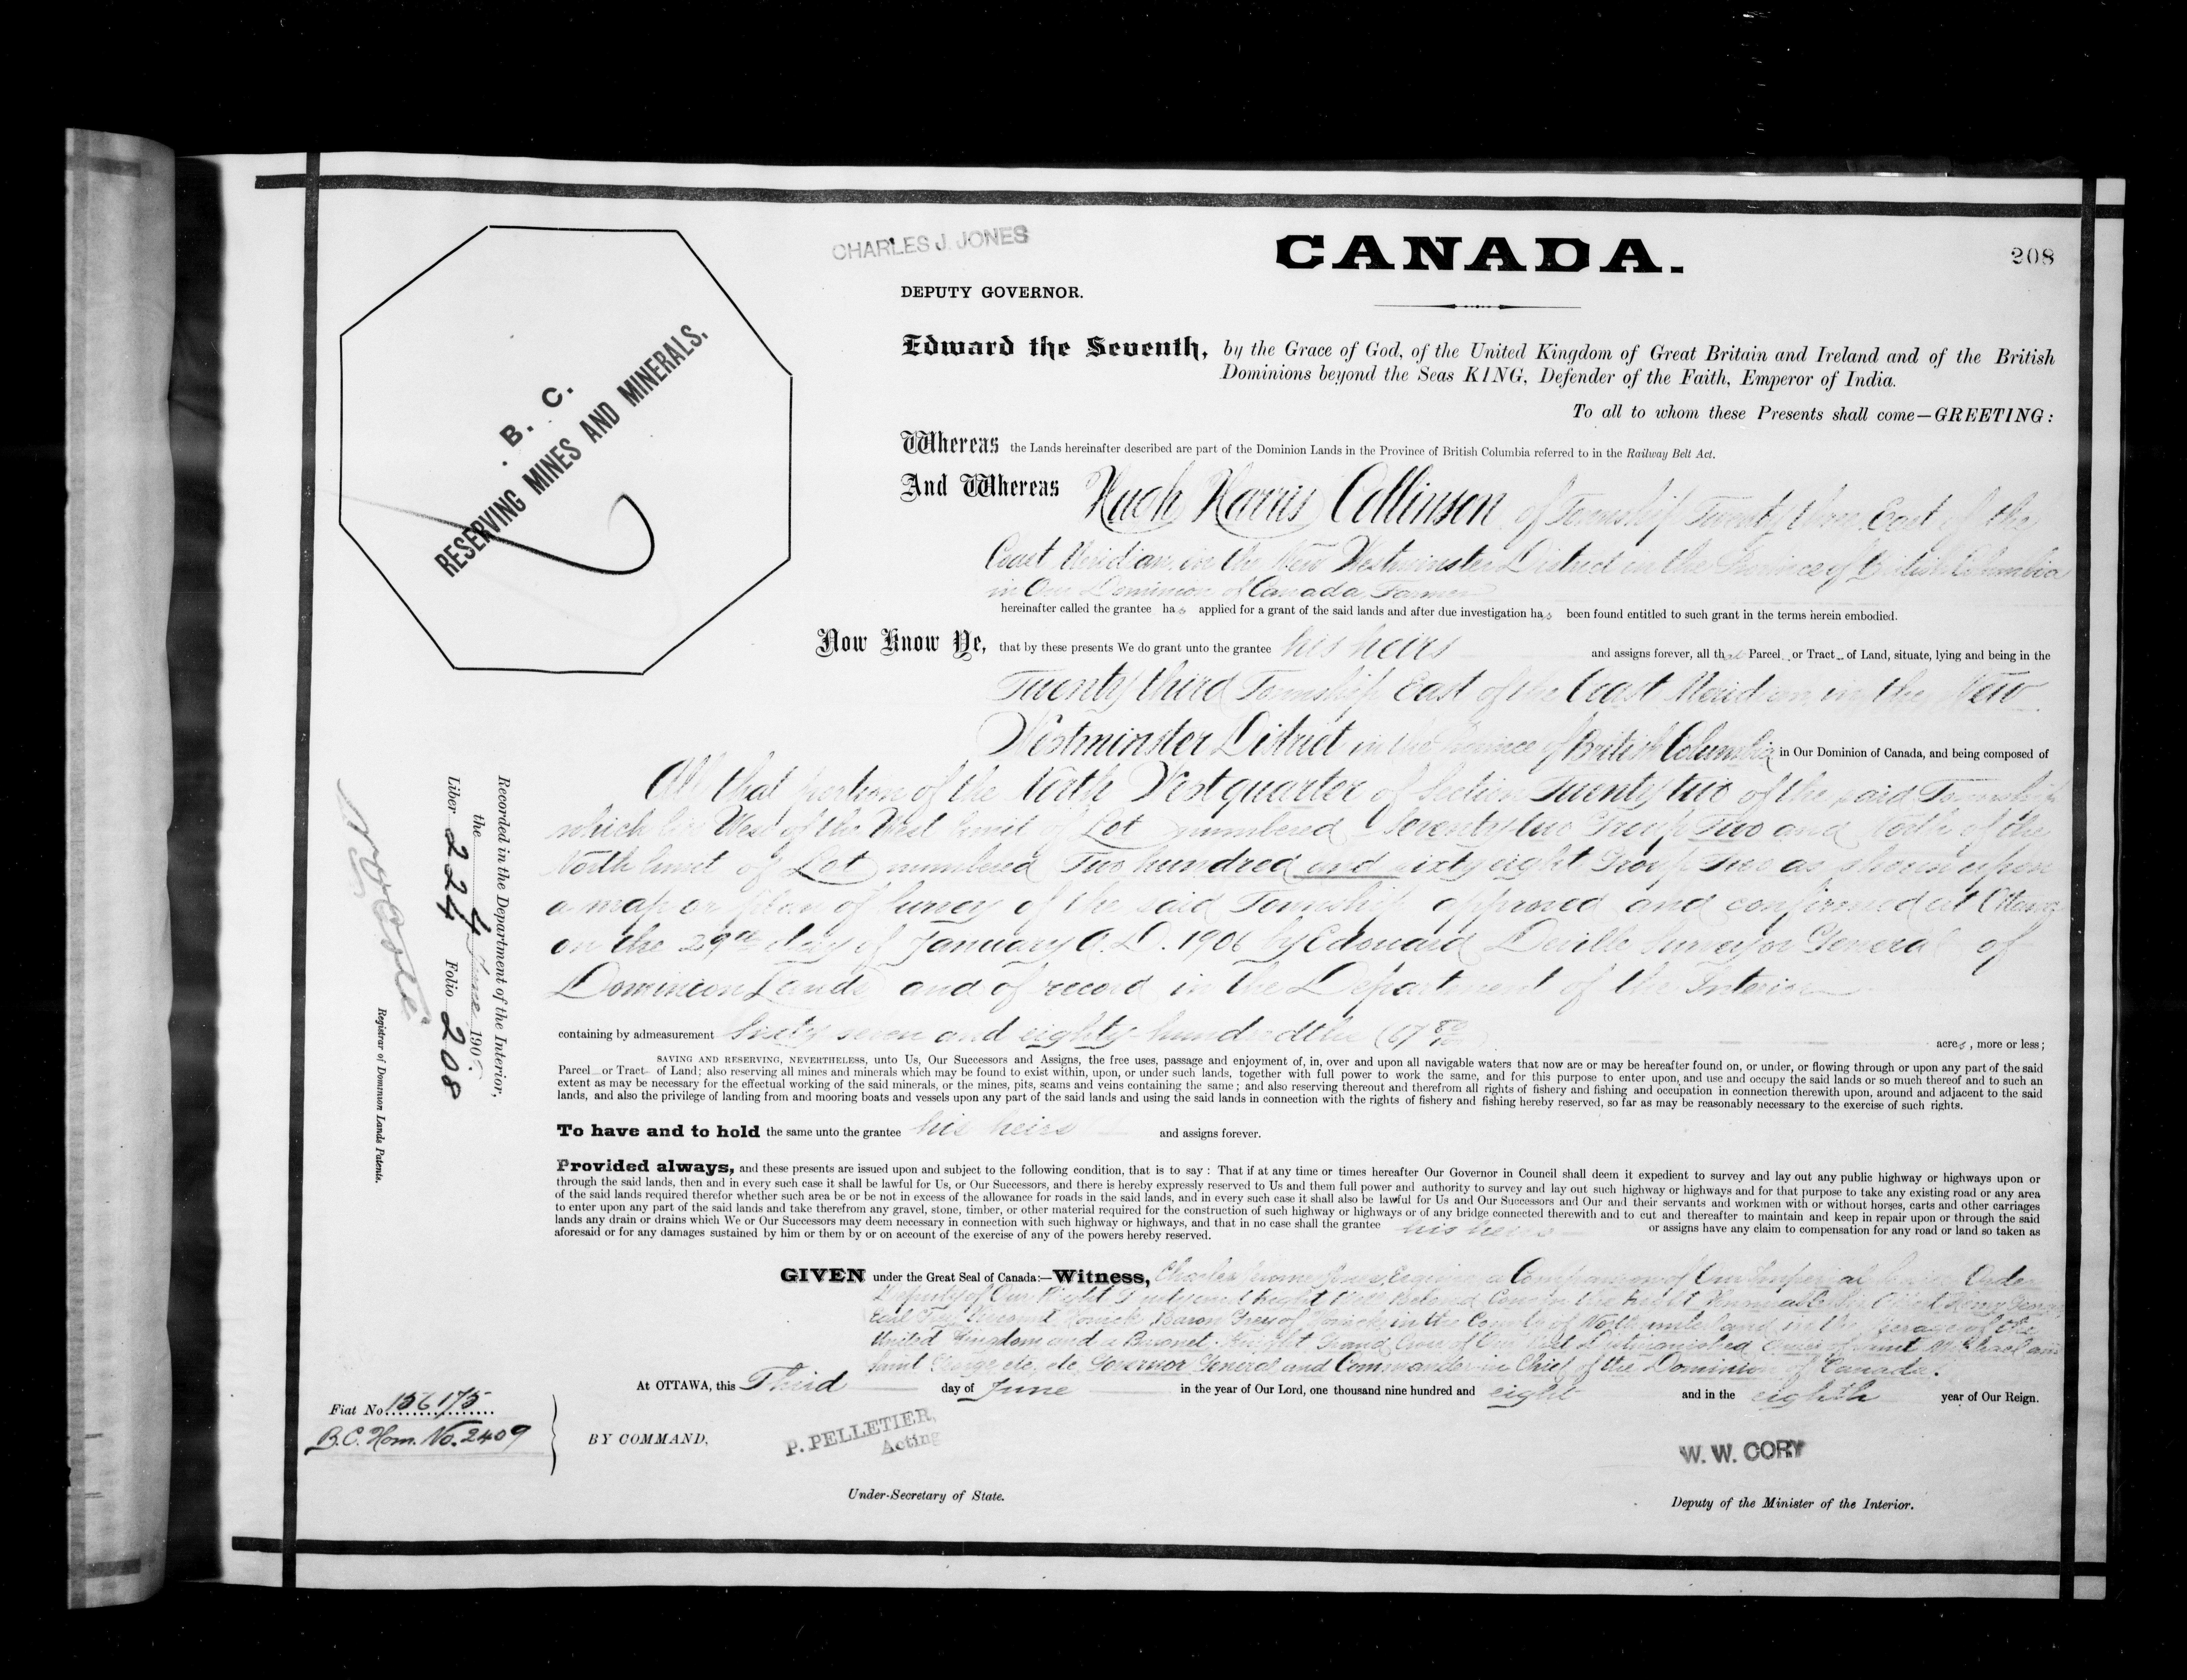 CHARLES J. JONES
CANADA.
208
DEPUTY GOVERNOR.
B. C.
RESERVING MINES AND MINERALS.
Edward the Seventh, by the Grace of God, of the United Kingdom of Great Britain and Ireland and of the British
Dominions beyond the Seas KING, Defender of the Faith, Emperor of India.
To all to whom these Presents shall come—GREETING:
Whereas the Lands hereinafter described are part of the Dominion Lands in the Province of British Columbia referred to in the Railway Belt Act.
And Whereas Hugh Harris Collinson of Township Twenty three East of the
Coast Meridian in the New Westminster District in the Province of British Columbia
in Our Dominion of Canada, Farmer
hereinafter called the grantee has applied for a grant of the said lands and after due investigation has been found entitled to such grant in the terms herein embodied.
Now Know Ye, that by these presents We do grant unto the grantee his heirs and assigns forever, all that Parcel or Tract of Land, situate, lying and being in the
Twenty third Township East of the Coast Meridian, in the New
Westminster District in the Province of British Columbia in Our Dominion of Canada, and being composed of
All that portion of the North West quarter of Section Twenty two of the said Township
which lies West of the West limit of Lot numbered Seventy two Group Two and North of the
North limit of Lot numbered Two hundred and sixty eight Group Two as shown upon
a map or plan of survey of the said Township approved and confirmed at Ottawa
on the 29th day of January A.D. 1906 by Edouard Deville Surveyor General of
Dominion Lands and of record in the Department of the Interior
containing by admeasurement Sixty seven and eighty hundredths (67 80/100) acres, more or less;
SAVING AND RESERVING, NEVERTHELESS, unto Us, Our Successors and Assigns, the free uses, passage and enjoyment of, in, over and upon all navigable waters that now are or may be hereafter found on, or under, or flowing through or upon any part of the said
Parcel or Tract of Land; also reserving all mines and minerals which may be found to exist within, upon, or under such lands, together with full power to work the same, and for this purpose to enter upon, and use and occupy the said lands or so much thereof and to such an
extent as may be necessary for the effectual working of the said minerals, or the mines, pits, seams and veins containing the same; and also reserving thereout and therefrom all rights of fishery and fishing and occupation in connection therewith upon, around and adjacent to the said
lands, and also the privilege of landing from and mooring boats and vessels upon any part of the said lands and using the said lands in connection with the rights of fishery and fishing hereby reserved, so far as may be reasonably necessary to the exercise of such rights.
To have and to hold the same unto the grantee his heirs and assigns forever.
Provided always, and these presents are issued upon and subject to the following condition, that is to say: That if at any time or times hereafter Our Governor in Council shall deem it expedient to survey and lay out any public highway or highways upon or
through the said lands, then and in every such case it shall be lawful for Us, or Our Successors, and there is hereby expressly reserved to Us and them full power and authority to survey and lay out such highway or highways and for that purpose to take any existing road or any area
of the said lands required therefor whether such area be or be not in excess of the allowance for roads in the said lands, and in every such case it shall also be lawful for Us and Our Successors and Our and their servants and workmen with or without horses, carts and other carriages
to enter upon any part of the said lands and take therefrom any gravel, stone, timber, or other material required for the construction of such highway or highways or of any bridge connected therewith and to cut and thereafter to maintain and keep in repair upon or through the said
lands any drain or drains which We or Our Successors may deem necessary in connection with such highway or highways, and that in no case shall the grantee his heirs or assigns have any claim to compensation for any road or land so taken as
aforesaid or for any damages sustained by him or them by or on account of the exercise of any of the powers hereby reserved.
GIVEN under the Great Seal of Canada:—Witness, Charles Jerome Jones, Esquire, a Companion of Our Imperial Service Order
Deputy of Our Right Trusty and Right Well Beloved Cousin the Right Honourable Sir Albert Henry George,
Earl Grey, Viscount Howick, Baron Grey of Howick, in the County of Northumberland in the Peerage of the
United Kingdom and a Baronet: Knight Grand Cross of Our Most Distinguished Order of Saint Michael and
Saint George, etc. etc. Governor General and Commander-in-Chief of the Dominion of Canada.
At OTTAWA, this Third day of June in the year of Our Lord, one thousand nine hundred and eight and in the eighth year of Our Reign.
BY COMMAND,
P. PELLETIER,
Acting
Under-Secretary of State.
W. W. CORY
Deputy of the Minister of the Interior.
Fiat No. 156175
B.C. Hom. No. 2409
Recorded in the Department of the Interior,
the 4 June 190
Liber 224 Folio 208
Registrar of Dominion Lands Patents.